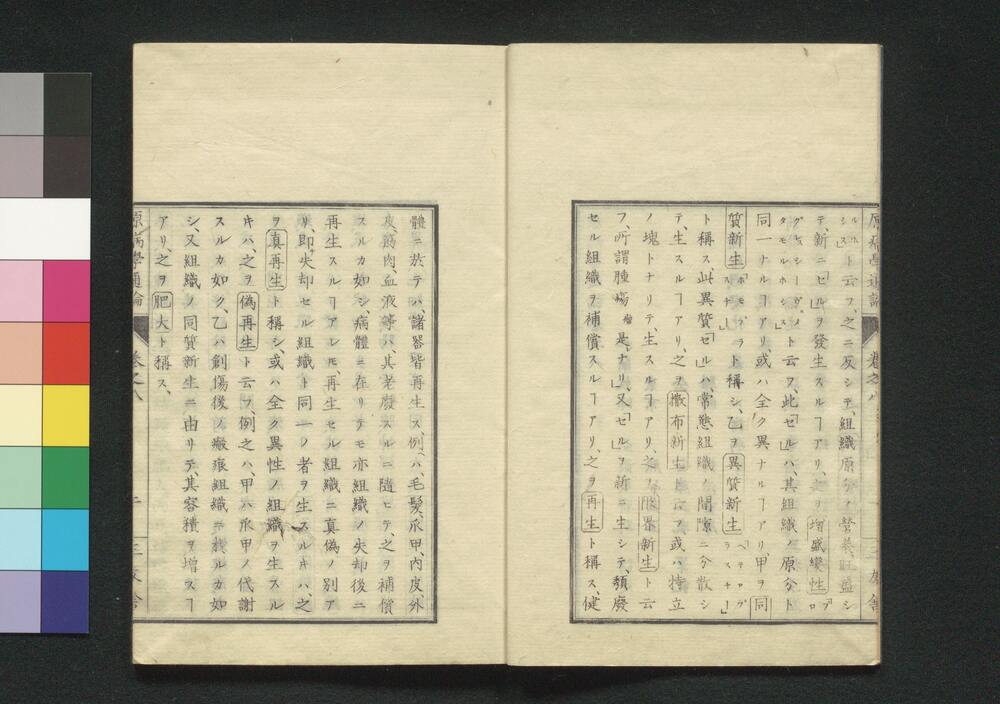 原病學通論 卷之八 三友舍
シス」ト云フ、之ニ反シテ、組織原分ノ營養旺盛シ
テ、新ニ「セル」ヲ發生スルヿアリ、之ヲ増盛變性「プロ
グレシーヴ、メタモルホシス」ト云フ、此「セル」ハ、其組織ノ原分ト
同一ナルヿアリ、或ハ全ク異ナルヿアリ、甲ヲ同
質新生「ホモプラスチー」ト稱シ、乙ヲ異質新生「ヘテロプラスチー」
ト稱ス此異質「セル」ハ、常態組織ノ間隙ニ分散シ
テ、生スルヿアリ、之ヲ撒布新生ト云フ或ハ特立
ノ塊トナリテ、生スルヿアリ、之ヲ限界新生ト云
フ、所謂腫瘍是ナリ、又「セル」ヲ新ニ生シテ、頽廢
セル組織ヲ補償スルヿアリ、之ヲ再生ト稱ス、健
體ニ於テハ、諸器皆再生ス、例ハ、毛髮、爪甲、内皮、外
皮、筋肉、血液等ハ、其老廢スルニ隨ヒテ、之ヲ補償
スルカ如シ、病體ニ在リテモ亦組織ノ失却後ニ
再生スルヿアレモ、再生セル組織ニ真偽ノ別ア
リ、即失却セル組織ト同一ノ者ヲ生スルキハ、之
ヲ真再生ト稱シ、或ハ全ク異性ノ組織ヲ生スル
キハ、之ヲ偽再生ト云フ、例之ハ、甲ハ爪甲ノ代謝
スルカ如ク、乙ハ創傷後ノ瘢痕組織ニ於ルカ如
シ、又組織ノ同質新生ニ由リテ、其容積ヲ増スヿ
アリ、之ヲ肥大ト稱ス、
原病學通論 卷之八 三友舍